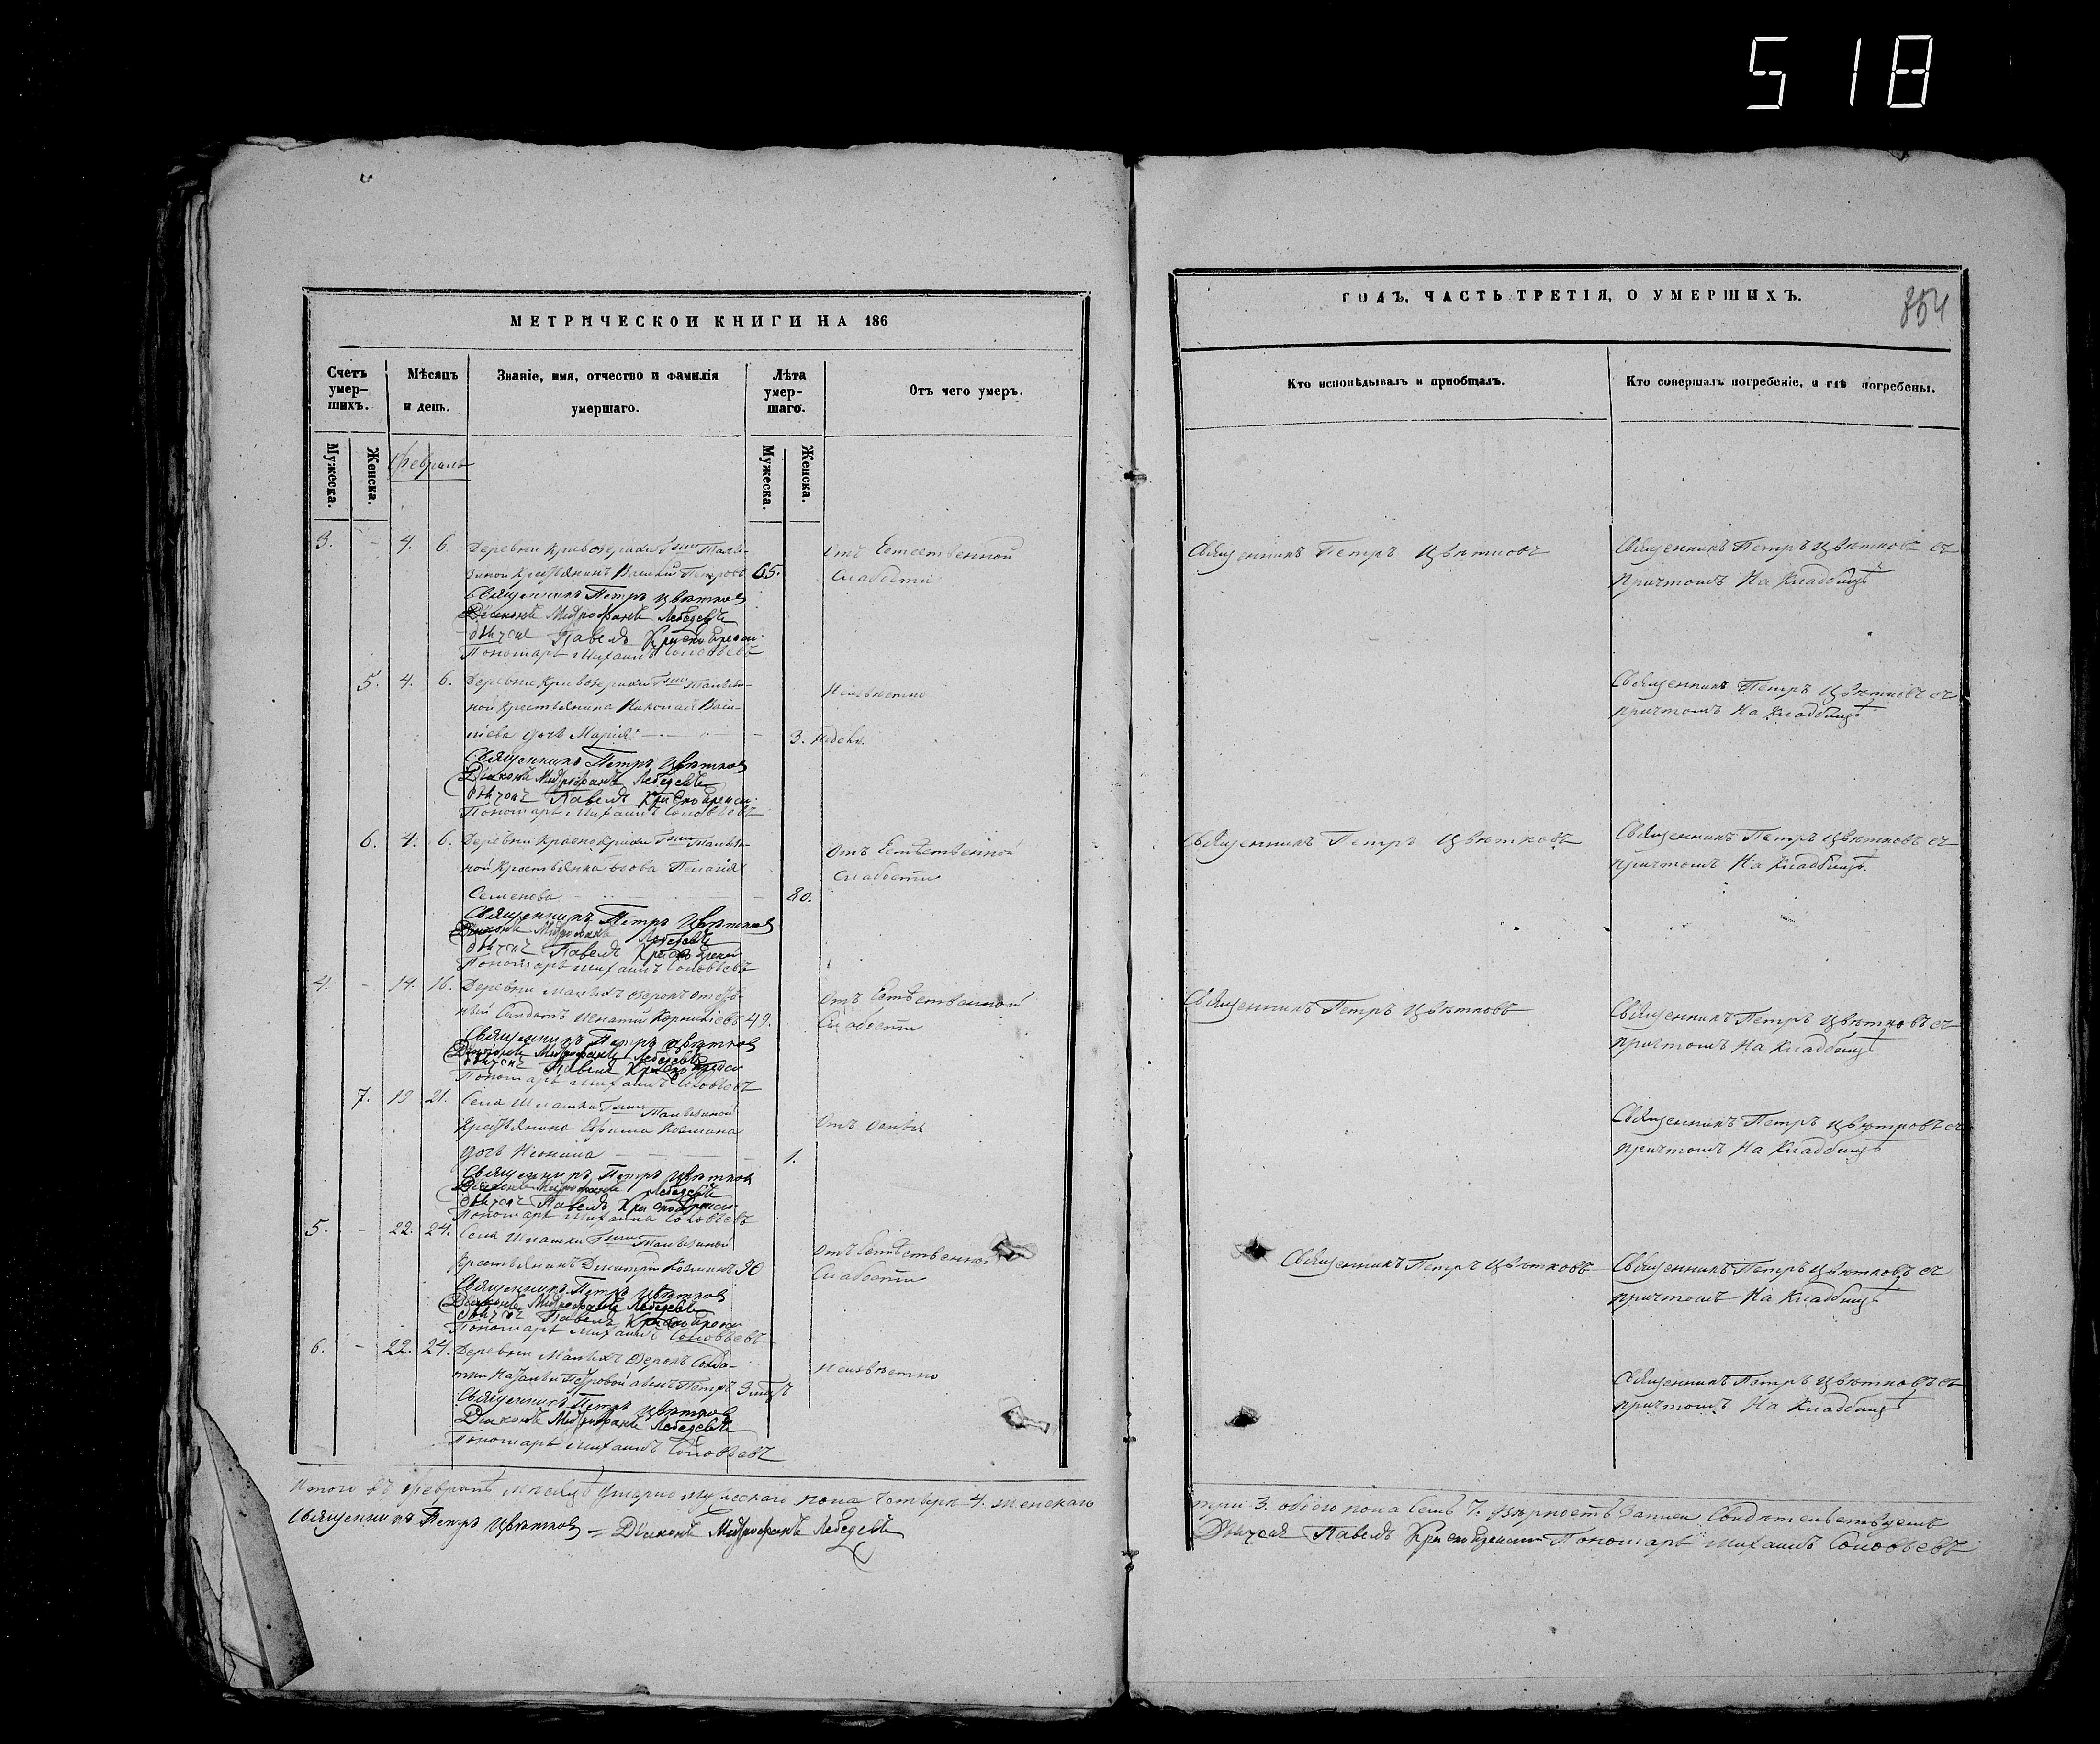 518
МЕТРИЧЕСКОЙ КНИГИ НА 186
Счетъ умер-шихъ.
Мѣсяцъ и день.
Званіе, имя, отчество и фамилія умершаго.
Лѣта умер-шаго.
Отъ чего умеръ.
Мужеска.
Женска.
Февраль
Мужеска.
Женска.
3. - 4. 6. Деревни
крестьянинъ Василій Петровъ 65.
Отъ Естественной
Слабости
Священникъ Петръ Цвѣтковъ
Діаконъ Митрофанъ Лебедевъ
Дьячокъ Павелъ
Пономарь Михаилъ Соловьевъ
5. 4. 6. Деревни
ной крестьянина Николая Васи-
льева дочь Марія 3. недѣл.
Неизвѣстно
Священникъ Петръ Цвѣтковъ
Діаконъ Митрофанъ Лебедевъ
Дьячокъ Павелъ
Пономарь Михаилъ Соловьевъ
6. 4. 6. Деревни
ной крестьянка вдова Пелагія
Семенова 80.
Отъ Естественной
Слабости
Священникъ Петръ Цвѣтковъ
Діаконъ Митрофанъ Лебедевъ
Дьячокъ Павелъ
Пономарь Михаилъ Соловьевъ
4. - 14. 16. Деревни Малыхъ Озерокъ
Солдатъ Игнатій Корнилiевъ 49.
Отъ Естественной
Слабости
Священникъ Петръ Цвѣтковъ
Діаконъ Митрофанъ Лебедевъ
Дьячокъ Павелъ
Пономарь Михаилъ Соловьевъ
7. 19 21. Села
Крестьянина Ефима Козмина
дочь 1.
Отъ оспы
Священникъ Петръ Цвѣтковъ
Діаконъ Митрофанъ Лебедевъ
Дьячокъ Павелъ
Пономарь Михаилъ Соловьевъ
5. - 22. 24. Села
Крестьянинъ Димитрій Козминъ 90
Отъ Естественной
Слабости
Священникъ Петръ Цвѣтковъ
Діаконъ Митрофанъ Лебедевъ
Дьячокъ Павелъ
Пономарь Михаилъ Соловьевъ
6. - 22. 24. Деревни Малыхъ Озерокъ Солда-
тки Петровой сынъ Петръ
Неизвѣстно
Священникъ Петръ Цвѣтковъ
Діаконъ Митрофанъ Лебедевъ
Пономарь Михаилъ Соловьевъ
Итого въ Февралѣ мѣсяцѣ умерло мужескаго пола четыри 4. женскаго
Священникъ Петръ Цвѣтковъ = Діаконъ Митрофанъ Лебедевъ
ГОДЪ, ЧАСТЬ ТРЕТІЯ, О УМЕРШИХЪ.
854
Кто исповѣдывалъ и пріобщалъ.
Кто совершалъ погребеніе, и гдѣ погребены.
Священникъ Петръ Цвѣтковъ
Священникъ Петръ Цвѣтковъ съ
причтомъ На Кладбищѣ
Священникъ Петръ Цвѣтковъ съ
причтомъ На Кладбищѣ
Священникъ Петръ Цвѣтковъ
Священникъ Петръ Цвѣтковъ съ
причтомъ На Кладбищѣ.
Священникъ Петръ Цвѣтковъ
Священникъ Петръ Цвѣтковъ съ
причтомъ На Кладбищѣ
Священникъ Петръ Цвѣтковъ съ
причтомъ На Кладбищѣ
Священникъ Петръ Цвѣтковъ
Священникъ Петръ Цвѣтковъ съ
причтомъ На Кладбищѣ
Священникъ Петръ Цвѣтковъ съ
причтомъ На Кладбищѣ
три 3. обоего пола Семь 7. вѣрность Записи Свидѣтельствуемъ
Дьячокъ Павелъ Пономарь Михаилъ Соловьевъ